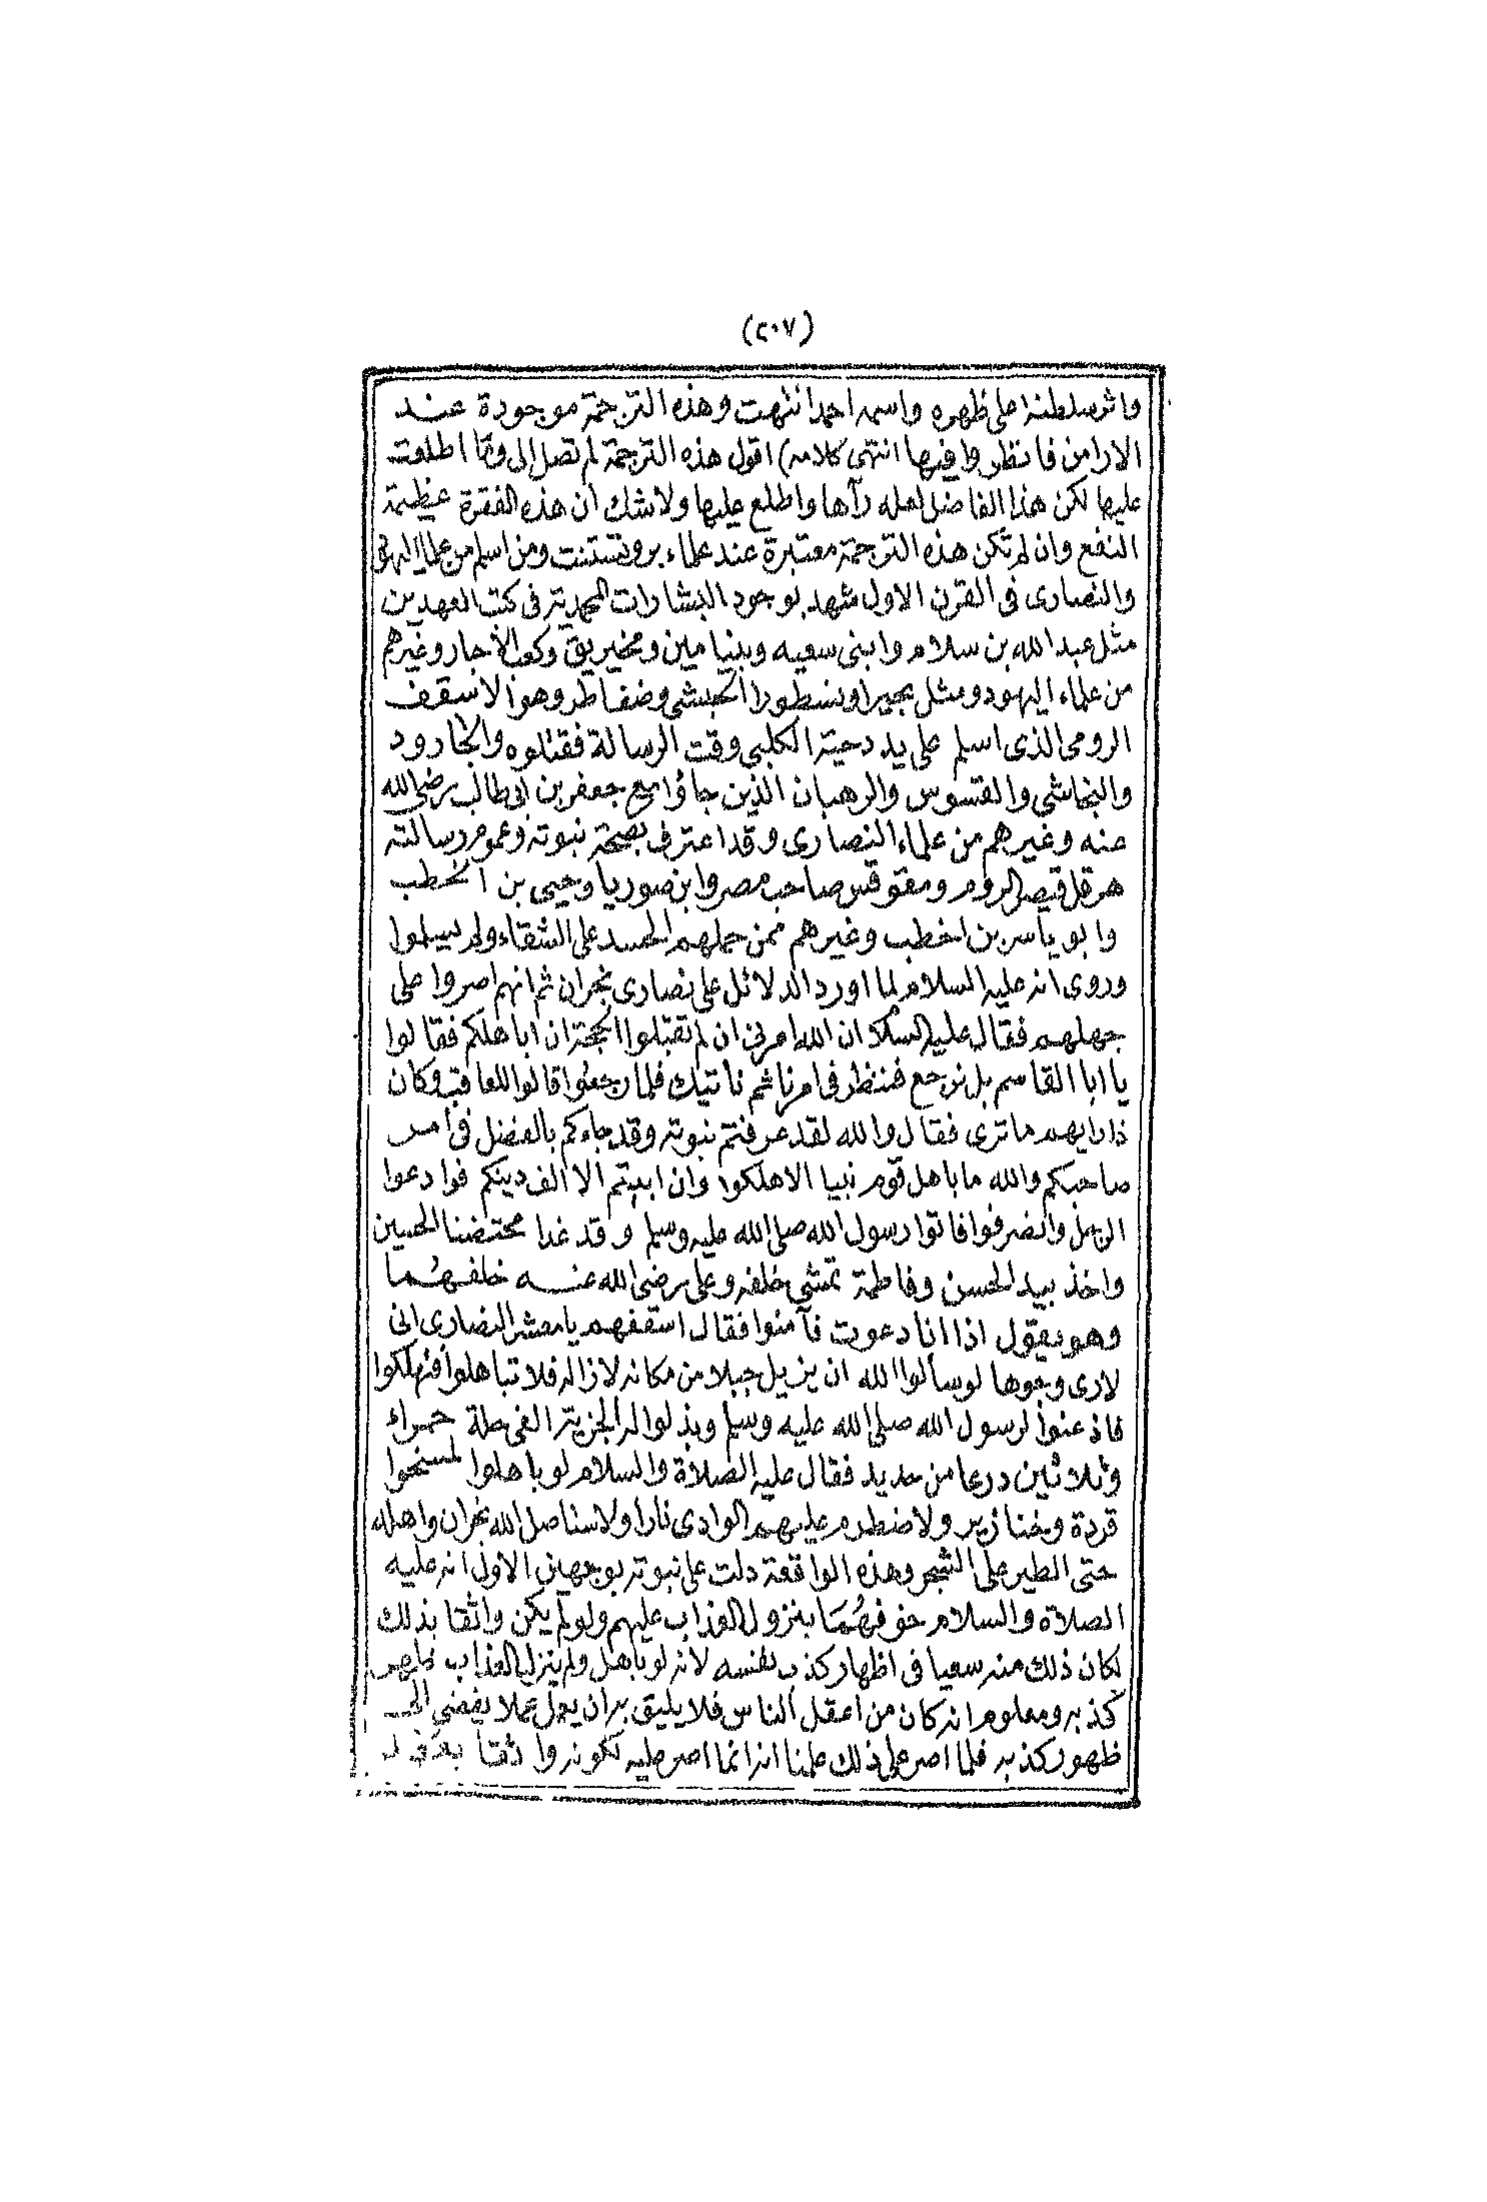 (٢٠٧)
واثر سلطنته على ظهره واسمه احمد انتهت وهذه الترجمة موجودة عند
الارامن فانظروا فيها انتهى كلامه) اقول هذه الترجمة لم تصل الى وما اطلعت
عليها لكن هذا الفاضل لعله رآها واطلع عليها ولاشك ان هذه الفقرة عظيمة
النفع وان لم تكن هذه الترجمة معتبرة عند علماء بروتستنت ومن اسلم من علماء اليهود
والنصارى فى القرن الاول شهد بوجود البشارات المحمدية فى كتب العهدين
مثل عبد الله بن سلام وابنى سعيه وبنيامين ومخيريق وكعب الأحبار وغيرهم
من علماء اليهود ومثل بحيرا ونسطورا الحبشى وضفاطر وهو الاسقف
الرومى الذى اسلم على يد دحية الكلبى وقت الرسالة فقتلوه والجارود
والنجاشى والقسوس والرهبان الذين جاؤا مع جعفر بن ابى طالب رضى الله
عنه وغيرهم من علماء النصارى وقد اعترف بصحة نبوته وعموم رسالته
هرقل قيصر الروم ومقوقس صاحب مصر وابن صوريا وحيى بن اخطب
وابو ياسر بن اخطب وغيرهم ممن حملهم الحسد على الشقاء ولم يسلموا
وروى انه عليه السلام لما اورد الدلائل على نصارى نجران ثم انهم اصروا على
جهلهم فقال عليه السلام ان الله امرنى ان لم تقبلوا الحجة ان اباهلكم فقالوا
يا ابا القاسم بل نرجع فننظر فى امرنا ثم نأتيك فلما رجعوا قالوا للعاقب وكان
ذا رايهم ما ترى فقال والله لقد عرفتم نبوته وقد جاءكم بالفضل فى امر
صاحبكم والله ما باهل قوم نبيا الا هلكوا وان ابيتم الا الف دينكم فوادعوا
الرجل وانصرفوا فاتوا رسول الله صلى الله عليه وسلم وقد غدا محتضنا الحسين
واخذ بيد الحسن وفاطمة تمشى خلفه وعلى رضى الله عنه خلفهما
وهو يقول اذا انا دعوت فآمنوا فقال اسقفهم يا معشر النصارى انى
لارى وجوها لو سألوا الله ان يزيل جبلا من مكانه لازاله فلا تباهلوا فتهلكوا
فاذعنوا لرسول الله صلى الله عليه وسلم وبذلوا له الجزية الفى حلة حمراء
وثلاثين درعا من حديد فقال عليه الصلاة والسلام لو باهلوا لمسخوا
قردة وخنازير ولاضطرم عليهم الوادى نارا ولاستاصل الله نجران واهله
حتى الطير على الشجر وهذه الواقعة دلت على نبوته بوجهين الاول انه عليه
الصلاة والسلام خوفهُمَا بنزول العذاب عليهم ولو لم يكن واثقا بذلك
لكان ذلك منه سعيا فى اظهار كذب نفسه لانه لو باهل ولم ينزل العذاب ظهر
كذبه ومعلوم انه كان من اعقل الناس فلا يليق به ان يعمل عملا يفضى الى
ظهور كذبه فلما اصر على ذلك علمنا انه انما اصر عليه لكونه واثقا